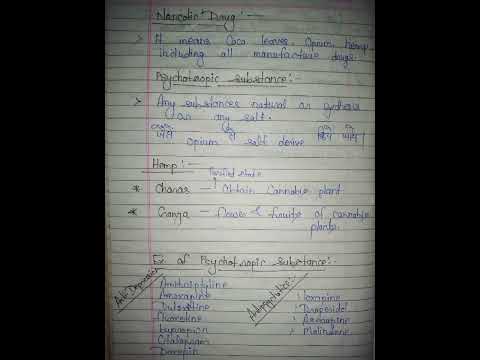 Narcotic Drug :-
> It means Coca leaves, Opium, hemp
including all manufacture drugs.
Psychotropic substance:-
> Any substances natural or synthesis
or any salt.
opium से salt derive किये जाते।
Hemp :-
* Charas - Obtain Cannabis plant
* Ganja - flower & fruits of cannabis
plants.
Ex of Psychotropic Substance:-
Anti Depression
Amitriptyline
Amoxapine
Duloxetine
Fluoxetine
Bupropion
Citalopram
Doxepin
Antipsychotics:-
Loxapine
Droperidol